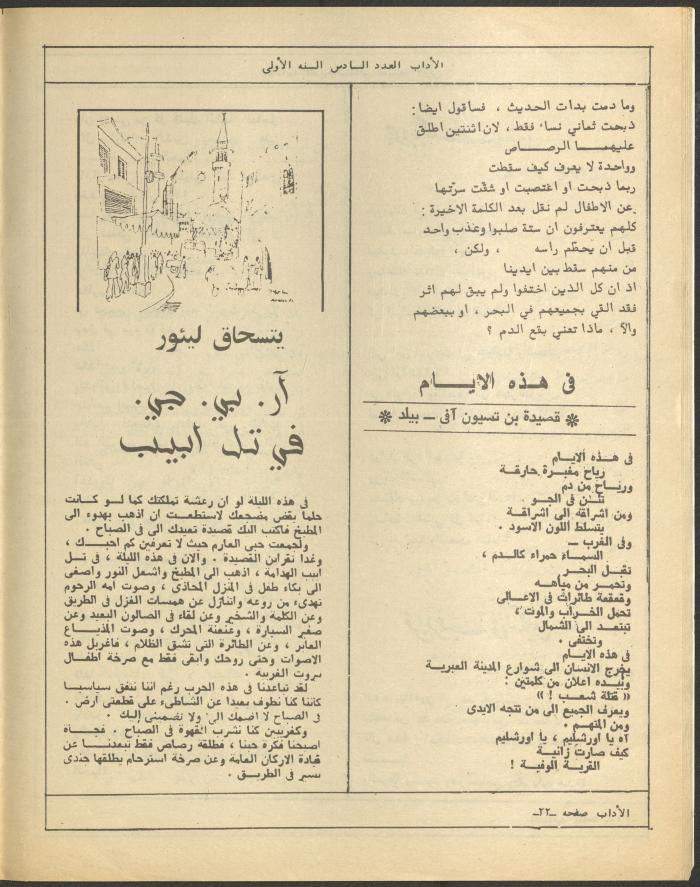 الآداب العدد السادس السنه الأولى
وما دمت بدأت الحديث ، فسأقول ايضا :
ذبحت ثماني نساء فقط ، لان اثنتين اطلق
عليهمـــا الرصـــاص
وواحدة لا يعرف كيف سقطت
ربما ذبحت او اغتصبت او شقّت سرّتها
عن الاطفال لم نقل بعد الكلمة الاخيرة :
كلهم يعترفون ان ستة صلبوا وعذب واحد
قبل أن يحطّم رأسه ، ولكن ،
من منهم سقط بين ايدينا
اذ ان كل الذين اختفوا ولم يبق لهم اثر
فقد القي بجميعهم في البحر ، او ببعضهم
والآ ، ماذا تعني بقع الدم ؟
في هذه الايـــام
* قصيدة بن تسيون آفي – بيلد *
في هــذه الايـام
رياح مغبـرة حارقة
وريـاح من دم
تئـن في الجـو .
ومن اشراقه الى اشراقـة
يتسلط اللون الاسود .
وفي الغرب ــ
السمـاء حمراء كالـدم ،
تقبـل البحـر
وتحمـر من مياهـه
وقعقعة طائرات في الاعـالي
تحمل الخـراب والموت ،
تبتعـد الى الشمال
وتختفي .
في هذه الايـام
يخرج الانسان الى شوارع المدينة العبرية
وبيـده اعلان من كلمتين :
« قتلة شعـب ! »
ويعرف الجميع الى من تتجه الايدي
ومن المتهـم .
آه يا اورشليم ، يا اورشليم
كيف صارت زانيـة
القريـة الوفيـة !
يتسحاق ليئور
آر. بي. جي.
في تل ابيب
في هذه الليلة لو ان رعشة تملكتك كما لـو كـانت
حلما يقض مضجعك لاستطعـت ان اذهب بهدوء الى
المطبخ فاكتب اليك قصيدة تعيدك الى في الصباح .
ولجمعت حبي العارم حيث لا تعرفين كم احبـك ،
وغدا تقرأين القصيدة . والآن في هذه الليلة ، في تـل
أبيب الهدامة ، اذهب الى المطبخ واشعل النور واصغي
الى بكاء طفل في المنزل المحاذي ، وصوت امه الرحوم
تهدىء من روعه واتنازل عن همسات الغزل في الطريق
وعن الكلمة والشخير وعن لقاء في الصالون البعيد وعن
صفير السيارة ، وعنعنة المحرك ، وصوت المذيـاع
العابر ، وعن الطائرة التي تشق الظلام ، فأغربل هذه
الاصوات وحتى روحك وأبقى فقط مع صرخة اطفـال
بيروت الغربيه .
لقد تباعدنا في هذه الحرب رغم اننا نتفق سياسيـا
كأننا كنا نطوف بعيدا عن الشاطىء على قطعتي ارض .
في الصباح لا اضمك الى ولا تضميني إليك .
وكغريبين كنا نشرب القهوة في الصباح . فجـأة
اصبحنا فكرة حينا ، فطلقة رصاص فقط تبعدنـا عن
قيادة الاركان العامة وعن صرخة استرحام يطلقها جندي
يسير في الطريـق .
الأداب صفحه ــ٢٢ــ